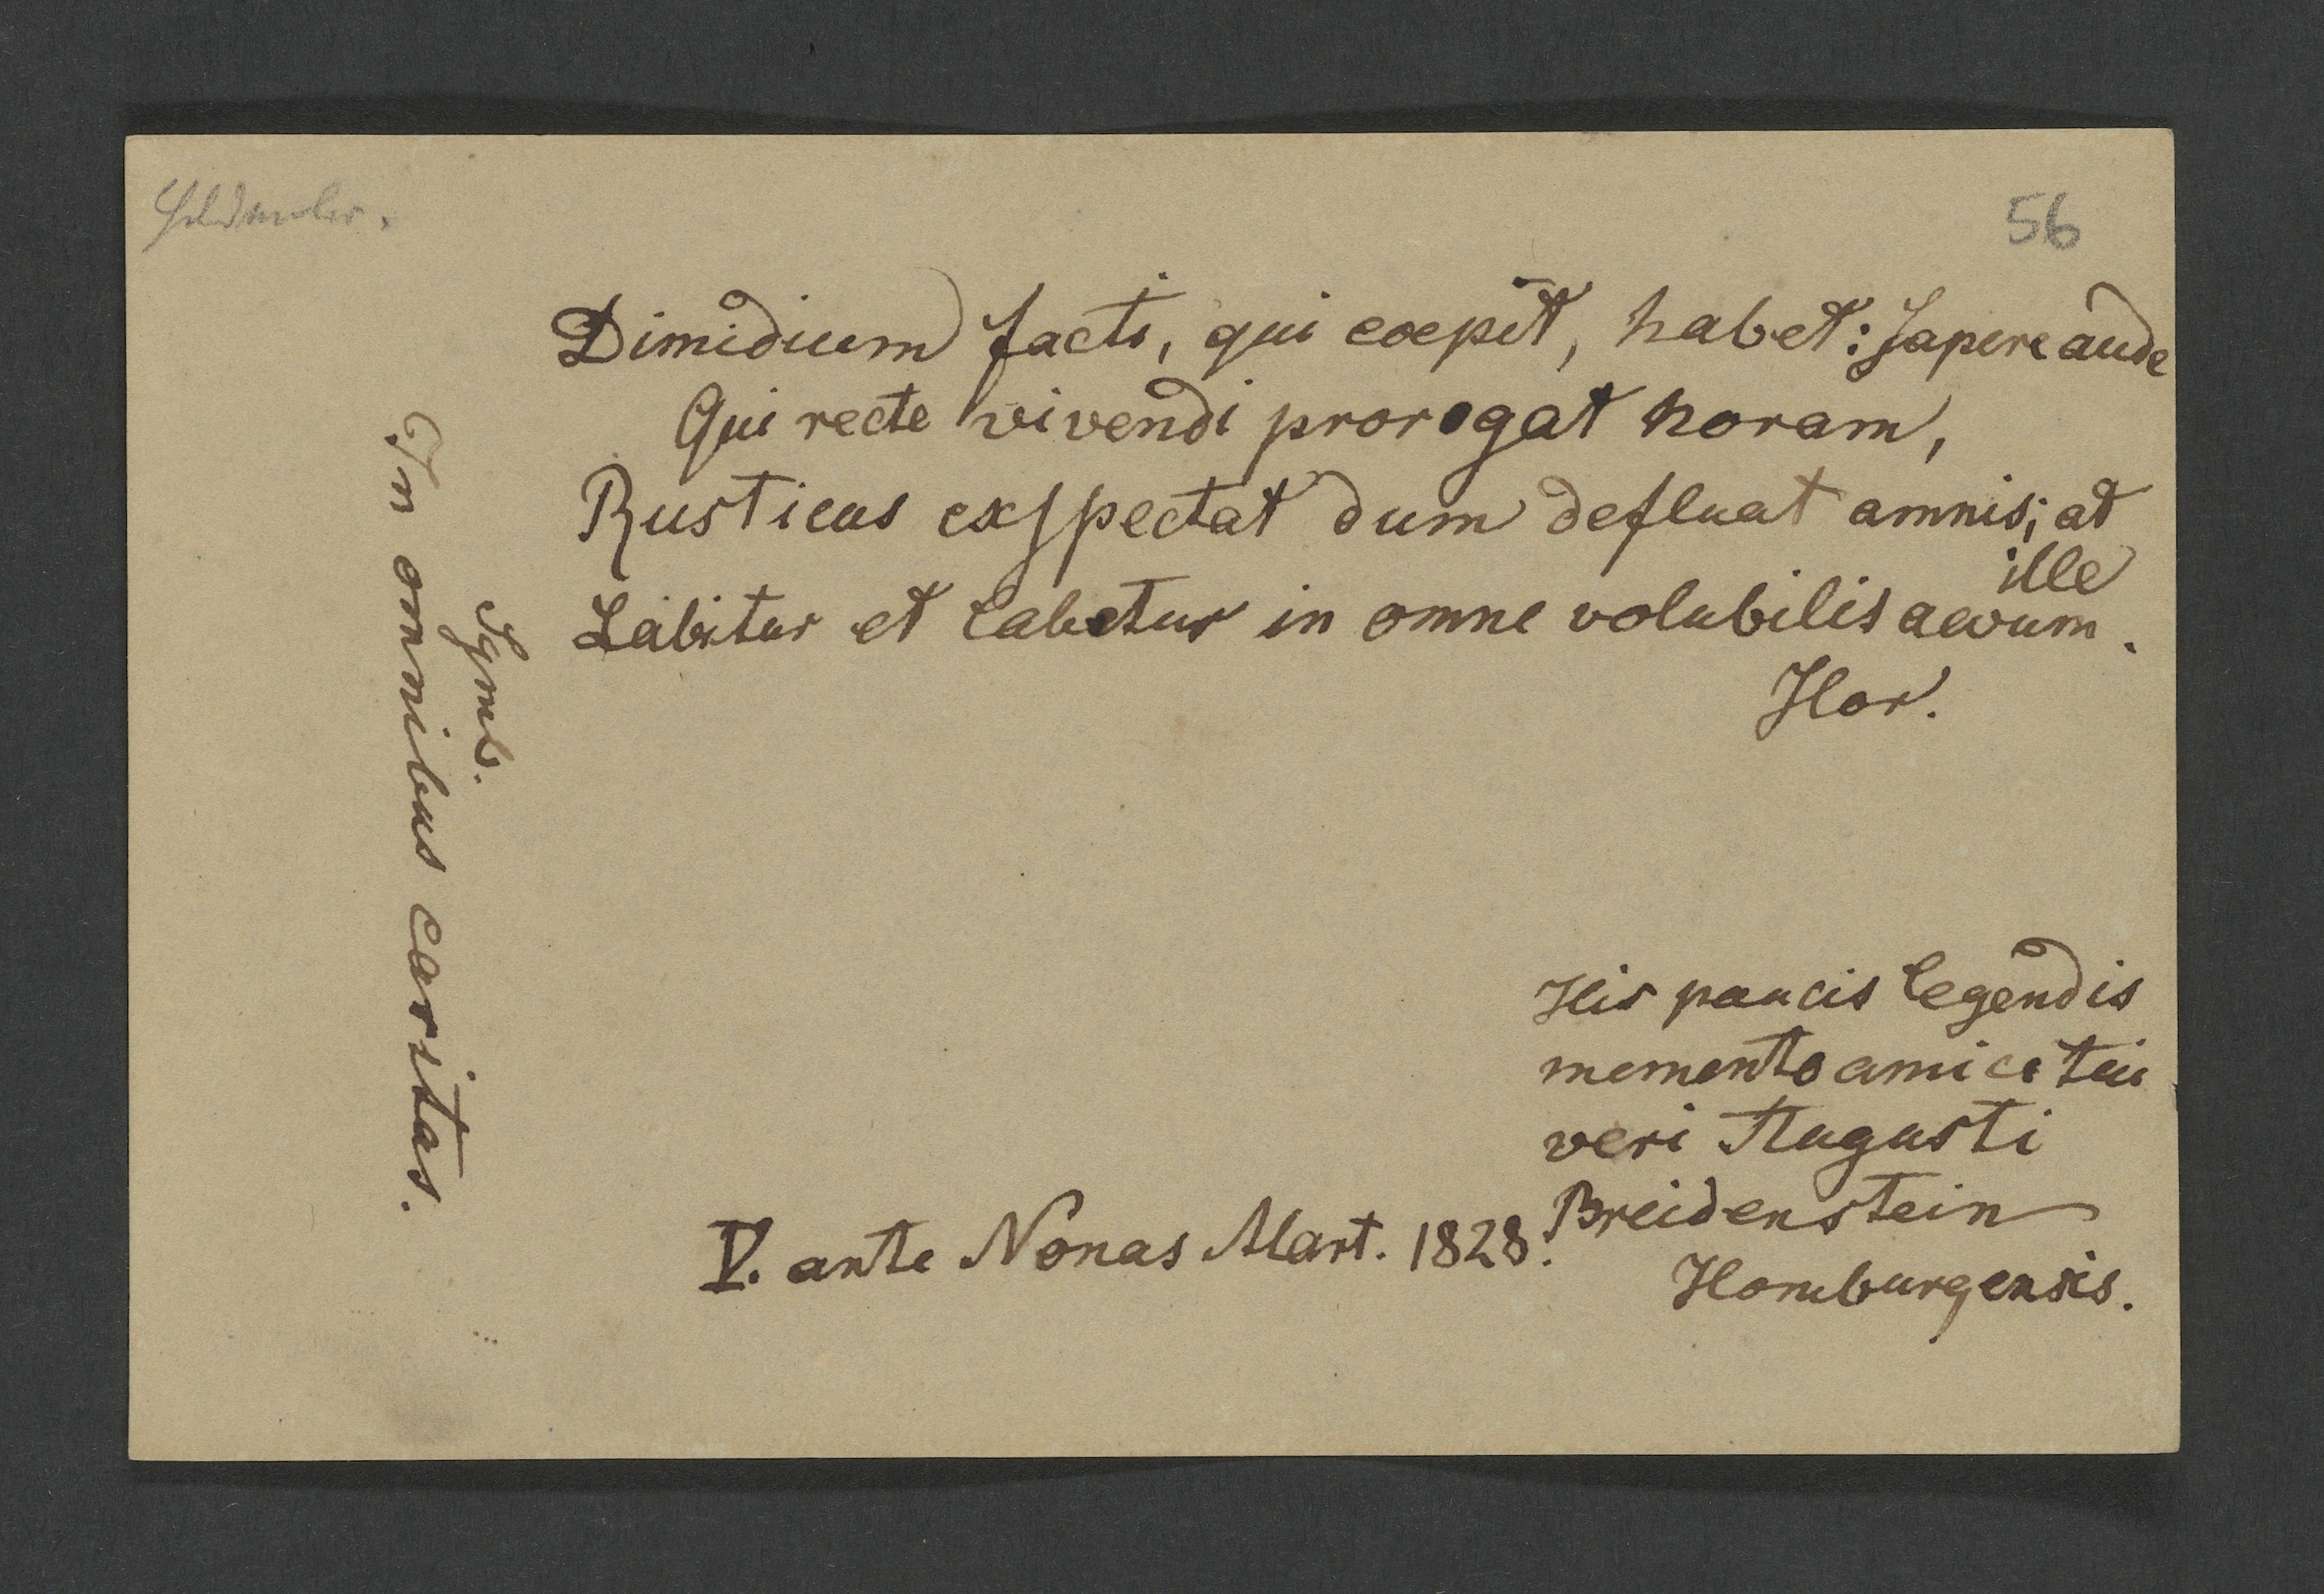 56
Dimidium facti, qui coepit, habet: sapere aude
Qui recte vivendi prorogat horam,
Rusticus exspectat dum defluat amnis; at
ille
Labitur et labetur in omne volubilis aevum.
Hor.
Symb.
In omnibus caritas.
His paucis legendis
memento amice tui
veri Augusti
Breidenstein
Homburgensis.
V. ante Nonas Mart. 1828.